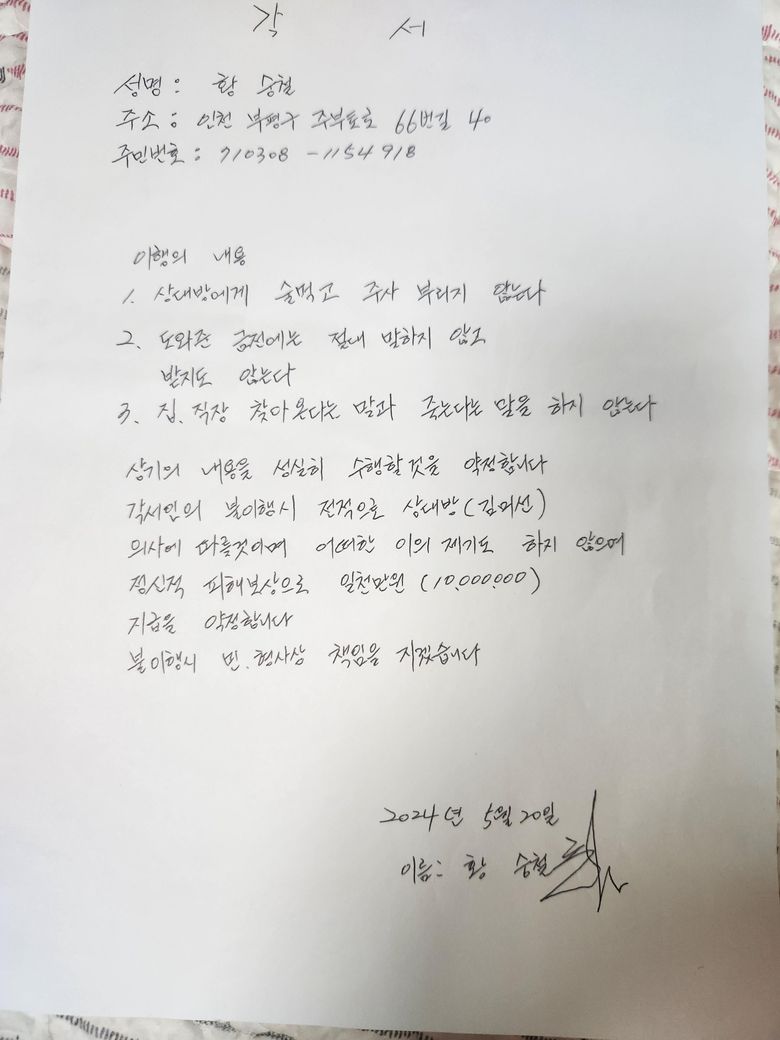 각 서
성명 : 황 승철
주소 : 인천 부평구 주부토로 66번길 40
주민번호 : 710308 - 1154918
이행의 내용
1. 상대방에게 술먹고 주사 부리지 않는다
2. 도와준 금전에는 절대 말하지 않고
받지도 않는다
3. 집. 직장 찾아온다는 말과 죽는다는 말을 하지 않는다
상기의 내용을 성실히 수행할것을 약정합니다
각서인의 불이행시 전적으로 상대방(김미선)
의사에 따를것이며 어떠한 이의 제기도 하지 않으며
정신적 피해보상으로 일천만원 (10,000,000)
지급을 약정합니다
불이행시 민.형사상 책임을 지겠습니다
2024년 5월 20일
이름: 황 승철